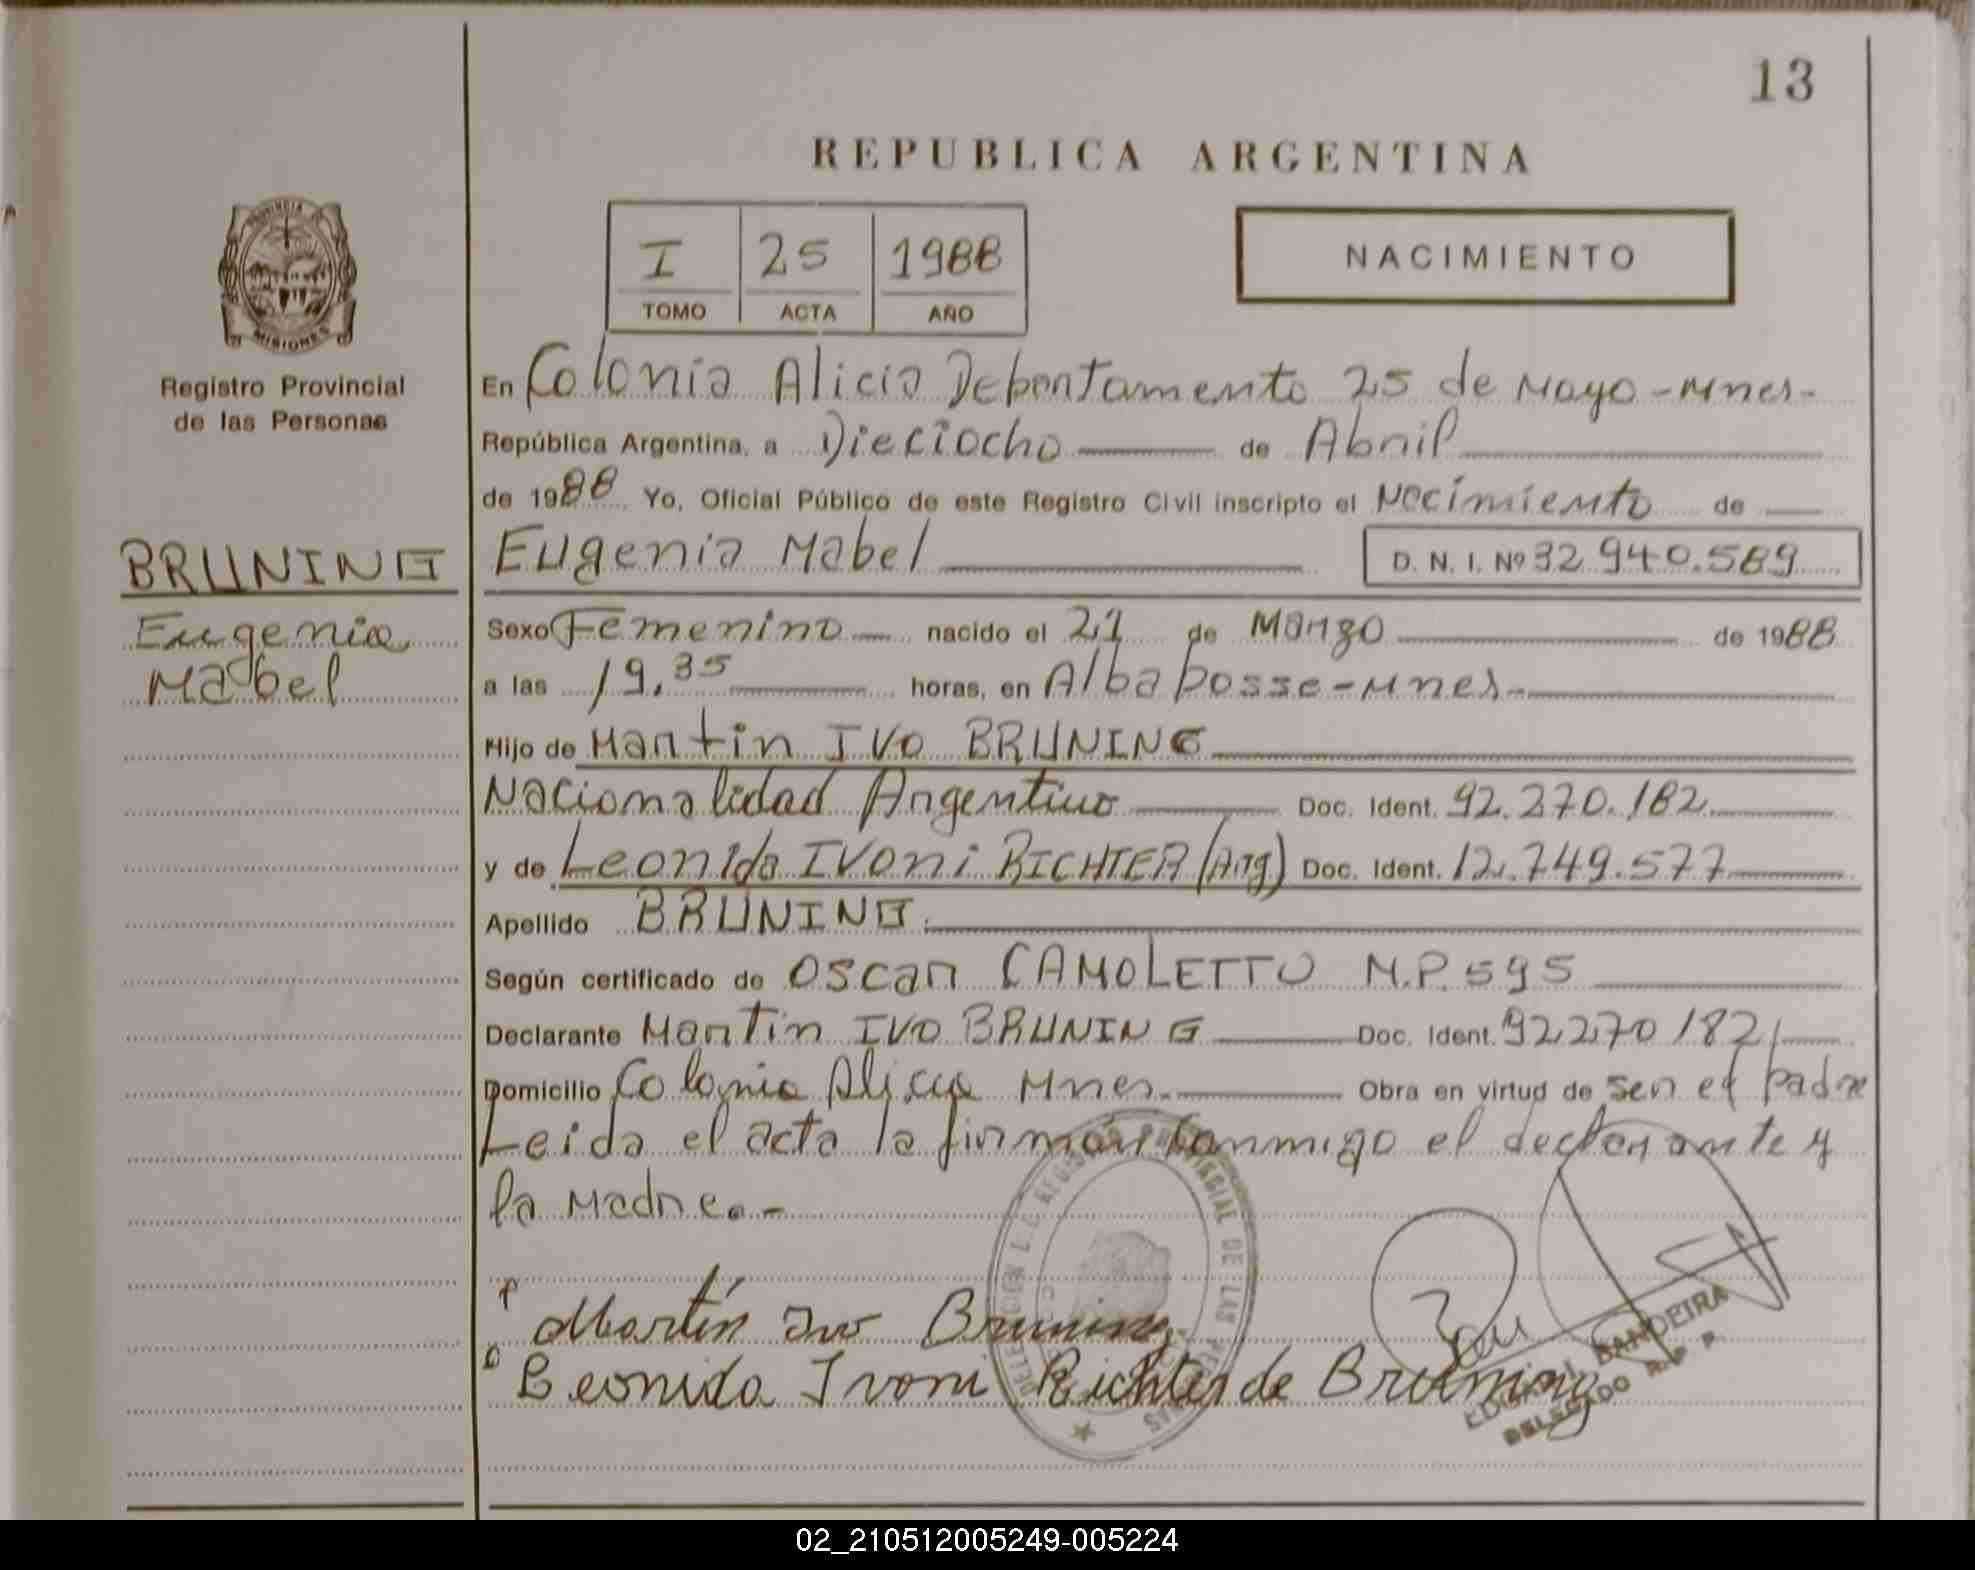 13
REPUBLICA ARGENTINA
I 25 1988
TOMO ACTA AÑO
NACIMIENTO
PROVINCIA DE
MISIONES
Registro Provincial
de las Personas
BRUNING
Eugenia
Mabel
En Colonia Alicia Departamento 25 de Mayo - Mnes -
República Argentina, a Dieciocho de Abril
de 1988 Yo, Oficial Público de este Registro Civil inscripto el Nacimiento de
Eugenia Mabel D. N. I. Nº 32 940.589
Sexo Femenino nacido el 21 de Marzo de 1988
a las 19,35 horas, en Alba Posse - Mnes -
Hijo de Martin Ivo BRUNING
Nacionalidad Argentino Doc. Ident. 92.270.182
y de Leonida IVoni RICHTER (Arg) Doc. Ident. 12.749.577
Apellido BRUNING.
Según certificado de Oscar CAMOLETTO M.P. 595
Declarante Martin IVO BRUNING Doc. Ident. 92270182
Domicilio Colonia Alicia Mnes. Obra en virtud de ser el padre
Leida el acta la firman conmigo el declarante y
la Madre. -
Martín Ivo Bruning
Leonida Ivoni Richter de Bruning
REGISTRO PROVINCIAL DE LAS PERSONAS
BANDEIRA
DELEGADO R. P. P.
02_210512005249-005224